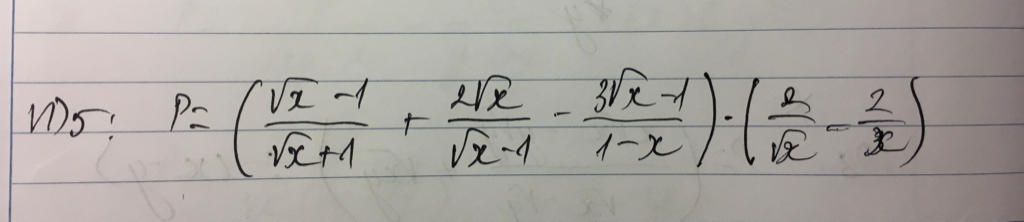 VD5: P = (\frac{\sqrt{x}-1}{\sqrt{x}+1} + \frac{2\sqrt{x}}{\sqrt{x}-1} - \frac{3\sqrt{x}-1}{1-x}) \cdot (\frac{2}{\sqrt{x}} - \frac{2}{x})